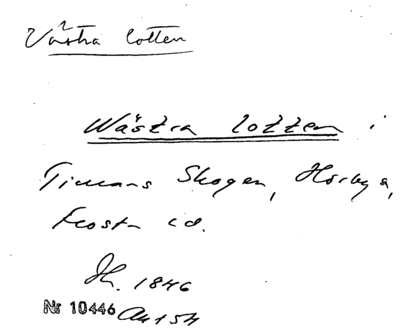 Västra lotten
Wästra lotten i
Timans Skogen, Hörby s,
Frosta hd.
Jh. 1846
Nr 10446 Akt 54